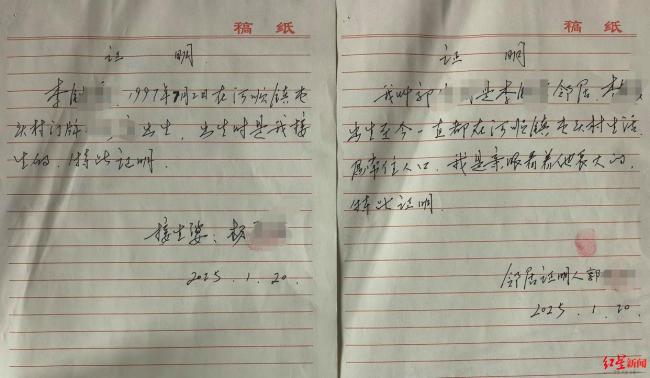 稿 纸
证 明
李 1997年7月2日在河顺镇东
出生,出生时是我接
生的,特此证明.
接生婆:杨
2025.1.20.
稿 纸
证 明
我叫郭 是李 邻居,李
出生至今一直都在河顺镇 村生活,
属常住人口,我是亲眼看着他长大的,
特此证明
邻居证明人郭
2025.1.20
红星新闻